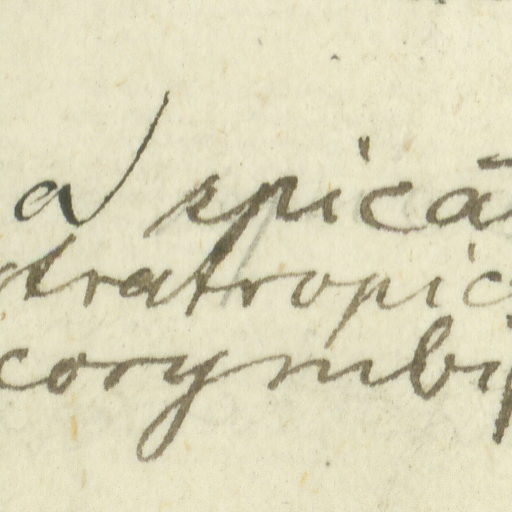 a spicā
tratropic
corymbif